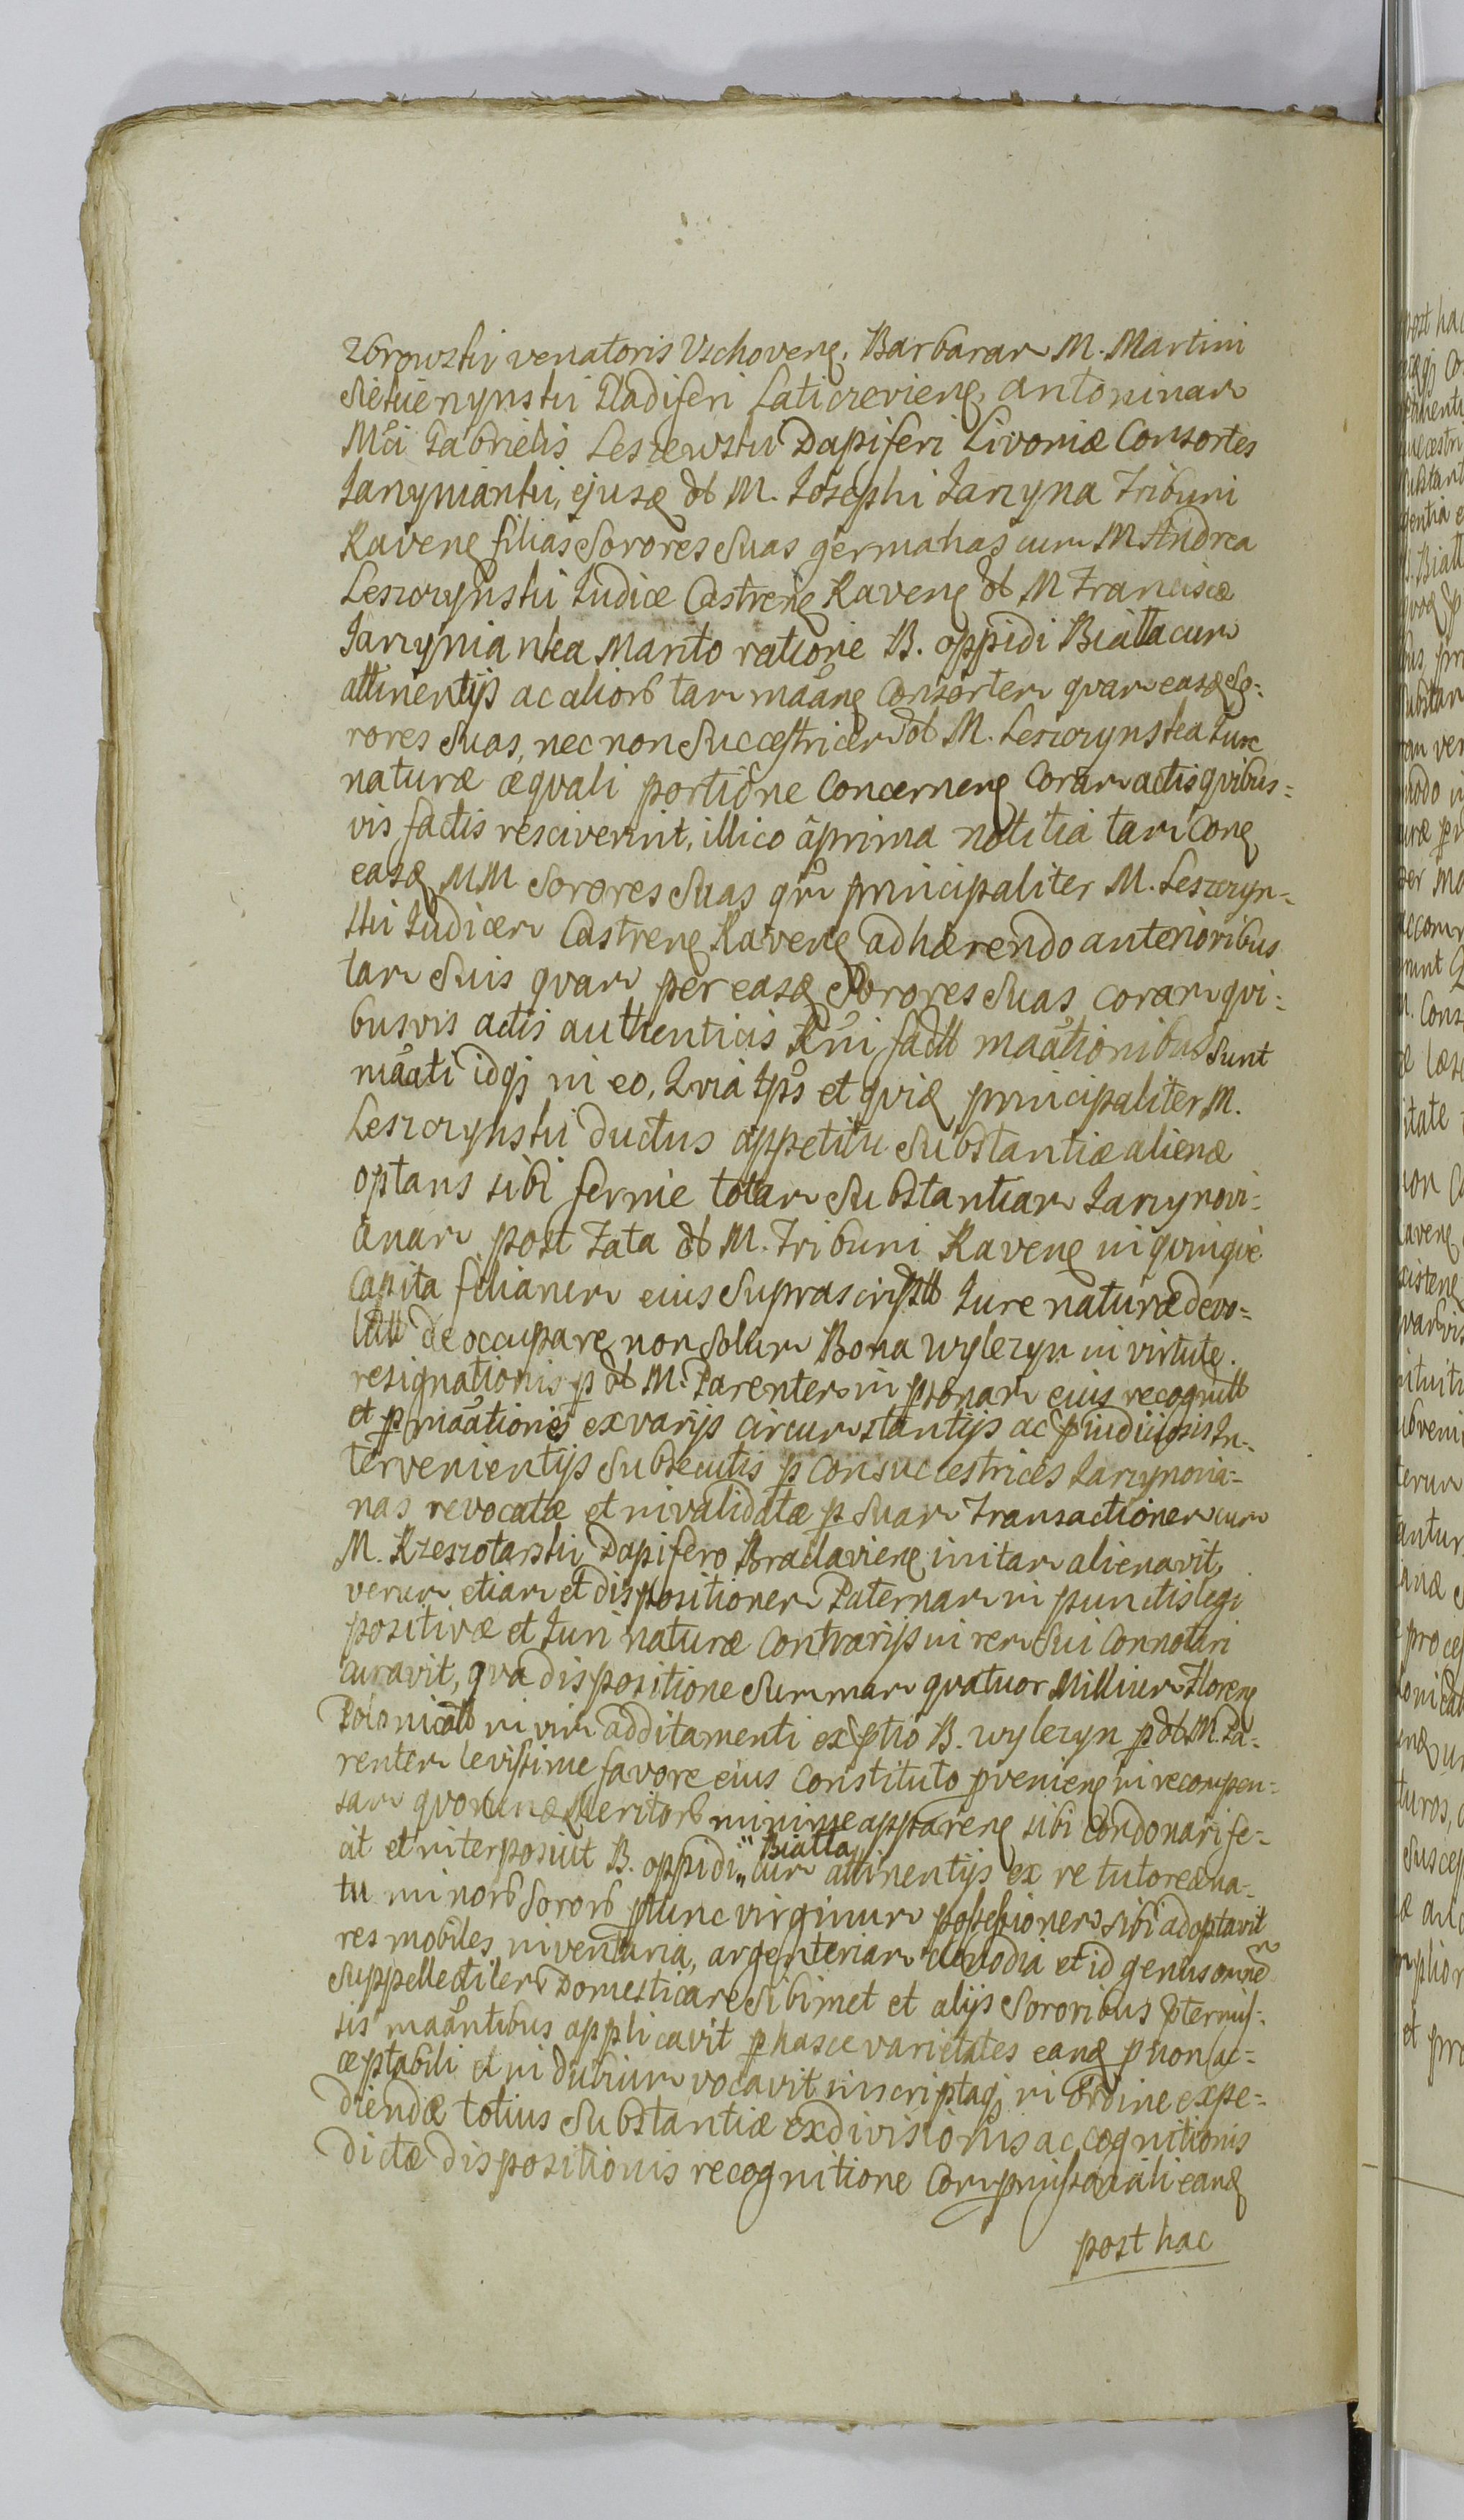 Zbrowski venatoris Vschoveng. Barbaram M. Martini
Siekienynski Gladiferi Laticzevieng, Antoninam
Mci Gabrielis Leszewski Dapiferi Livoniæ Consortes
Janyniantu, ejusq olb M. Iosephi Iarzyna Tribuni
Raveng filias Sorores Suas germanas cum M Andrea
Leszczynski Iudice Castreng Raveng olb M Franciscæ
Iarzynianka Marito ratione B. oppidi Biatta cum
attinentijs ac aliorb tam mãang Consortem quam easq So-
rores Suas, nec non Succestricem olb M. Leszczynska Iure
naturæ æquali portione Concerneng Coram actis quibus-
vis factis resciverint, illico à prima notitia tam Cong
easq MM Sorores Suas qm principaliter M. Leszczyn-
ski Iudicem Castreng Raveng adhærendo anterioribus
tam Suis quam per easq Sorores Suas, coram qui-
busvis actis authenticis Rni factb maãtionibus sunt
mãati idqz in eo, Quia Ips et quiq principaliter M.
Leszczynski ductus appetitu Substantiæ alienæ
optans sibi ferme totam Substantiam Iarzynovi-
anam post Fata olb M. Tribuni Raveng in quinque
Capita filiarum eius Suprascriptb Iure naturæ devo-
lutb deoccupare non Solum Bona Wylezyn in virtute
resignationis p olb M. Parentem in psonam eius recognitb
et p mãationes ex varijs circumstantijs ac pjudiciosis In-
tervenientijs Subsecutis p Consuccestrices Iarzynovia-
nas revocatæ et invalidatæ p Suam Transactionem cum
M. Krzeszotarski Dapifero Braclavieng initam alienavit,
verum etiam et dispositionem Paternam in punctis legi
positivæ et Iuri naturæ Contrarijs in rem Sui Connotari
curavit, qva dispositione Summam quatuor Millium Floreng
Polonicalb in vim additamenti ex ptio B. Wylezyn p olb M. Pa-
rentem levissime favore eius Constituto pvenieng in recompen-
sam quorunq Meritorb minime appareng sibi Condonari fe-
cit et interposuit B. oppidi " Biatta " cum attinentijs ex re tutoreæ na-
tu minorb Sororb ptunc virginum possessionem sibi adoptavit
res mobiles, inventaria, argenteriam clenodia et id genus omne
Suppellectilem Domesticam Sibimet et alijs Sororibus ptermis-
sis mãantibus applicavit p hasce varietates eanq p non ac-
ceptabili et in dubium vocavit inscriptaqz in Ordine expe-
diendæ totius Substantiæ exdivisionis ac cognitionis
dictæ dispositionis recognitione Compmissariali eanq
post hac